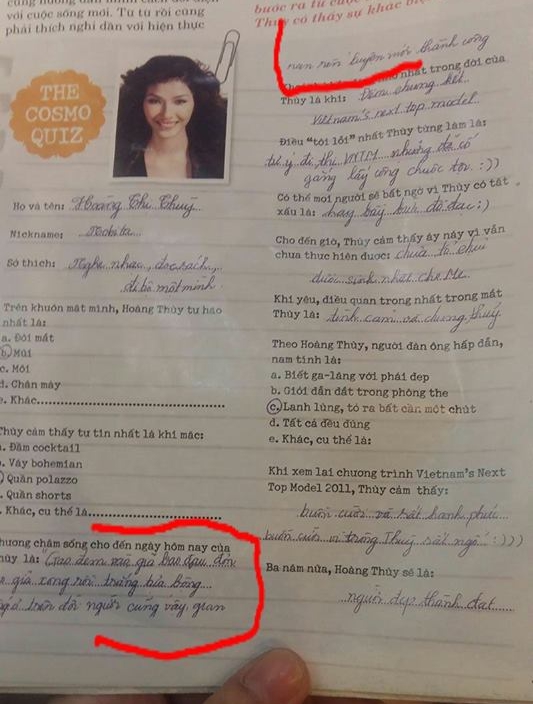 với cuộc sống mới. Từ từ rồi cũng
phải thích nghi dần với hiện thực
THE
COSMO
QUIZ
Họ và tên: Hoàng Thị Thuỳ
Nickname: Nobita
Sở thích: Nghe nhạc, đọc sách,
đi bộ một mình
Trên khuôn mặt mình, Hoàng Thùy tự hào
nhất là:
a. Đôi mắt
b. Mũi
c. Môi
d. Chân mày
e. Khác
Thùy cảm thấy tự tin nhất là khi mặc:
a. Đầm cocktail
b. Váy bohemian
Quần polazzo
Quần shorts
Khác, cụ thể là
Phương châm sống cho đến ngày hôm nay của
Thùy là: Gạo đem vào giã bao đau đớn
giã xong rồi trắng tựa bông
trên đời người cũng vậy, gian
bước ra từ cuộc
Thùy có thấy sự khác
nan rèn luyện mới thành công
nhất trong đời của
Thùy là khi: Đêm chung kết
Vietnam's next top model
Điều "tội lỗi" nhất Thùy từng làm là:
tự ý đi thi VNTM nhưng đã cố
gắng lấy công chuộc tội :))
Có thể mọi người sẽ bất ngờ vì Thùy có tật
xấu là: hay bày bừa đồ đạc :)
Cho đến giờ, Thùy cảm thấy áy náy vì vẫn
chưa thực hiện được: chưa tổ chức
được sinh nhật cho Mẹ
Khi yêu, điều quan trọng nhất trong mắt
Thùy là: tình cảm và chung thuỷ
Theo Hoàng Thùy, người đàn ông hấp dẫn,
nam tính là:
a. Biết ga-lăng với phái đẹp
b. Giỏi dẫn dắt trong phòng the
c. Lạnh lùng, tỏ ra bất cần một chút
d. Tất cả đều đúng
e. Khác, cụ thể là:
Khi xem lại chương trình Vietnam's Next
Top Model 2011, Thùy cảm thấy:
buồn cười và rất hạnh phúc
buồn cười vì trông Thuỳ rất ngố :)))
Ba năm nữa, Hoàng Thùy sẽ là:
người đẹp thành đạt